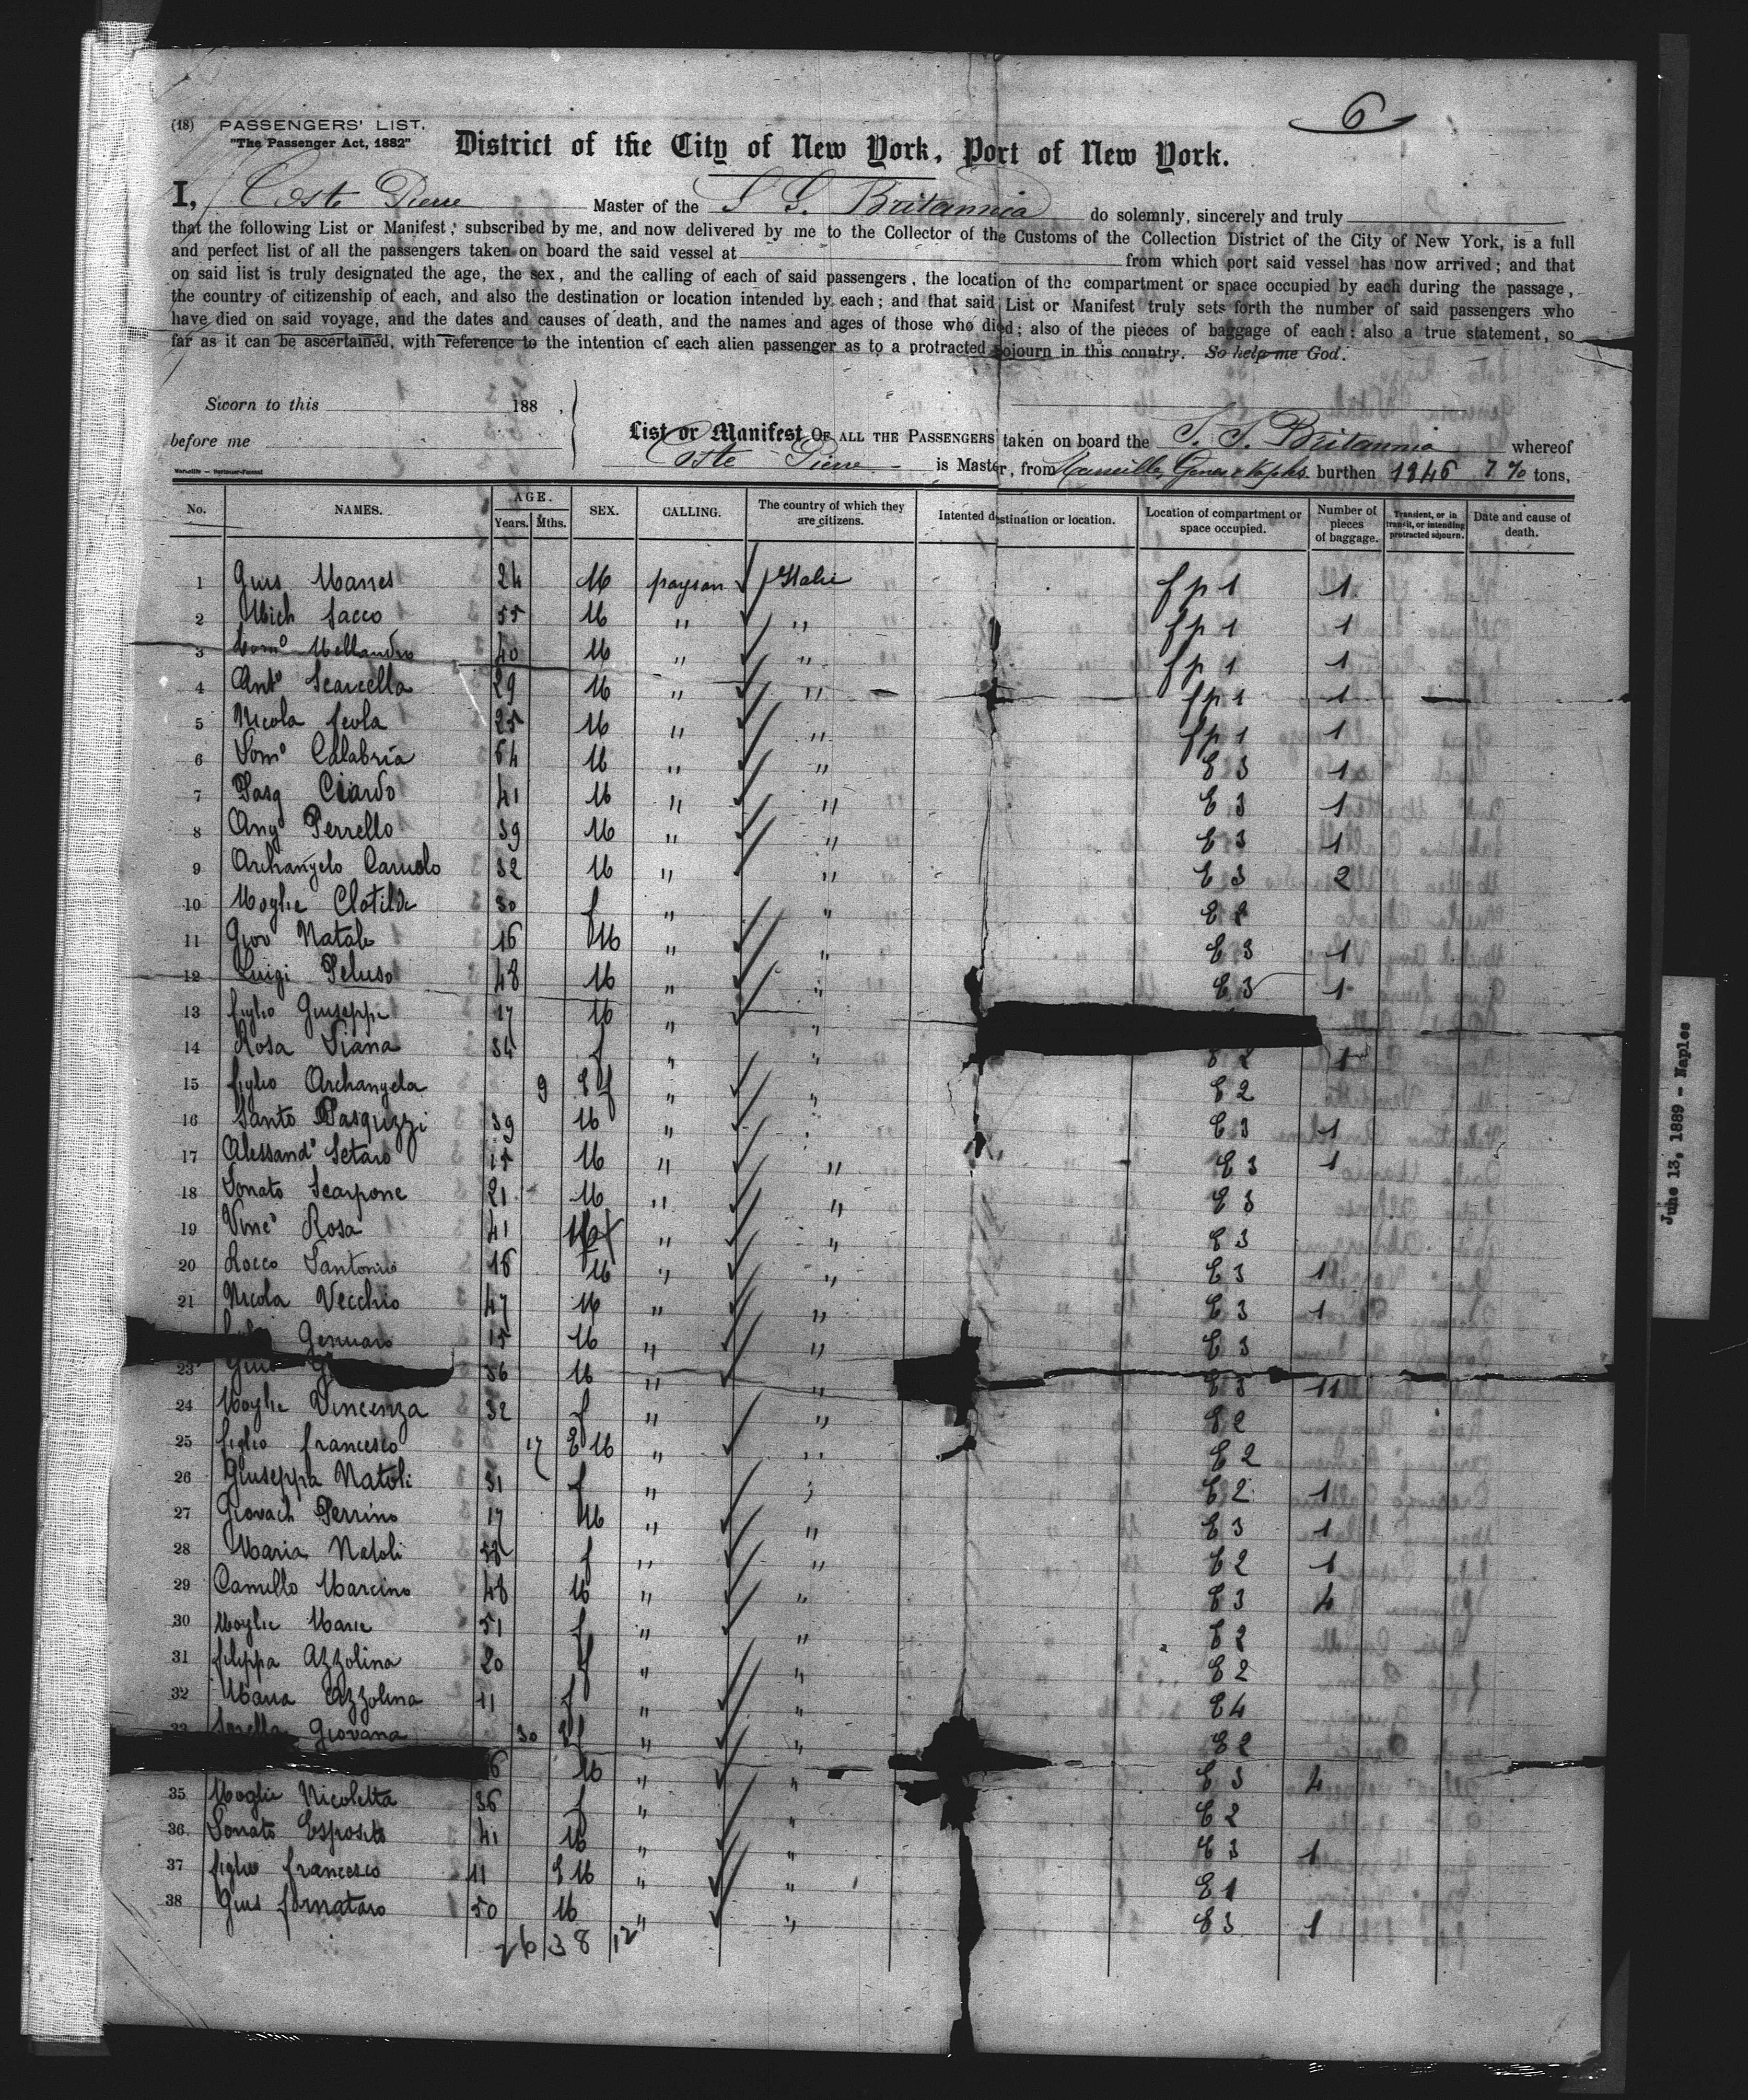 6
(18) PASSENGERS' LIST.
"The Passenger Act, 1882"
District of the City of New York, Port of New York.
I, Coste Pierre Master of the S S Britannia do solemnly, sincerely and truly
that the following List or Manifest, subscribed by me, and now delivered by me to the Collector of the Customs of the Collection District of the City of New York, is a full
and perfect list of all the passengers taken on board the said vessel at from which port said vessel has now arrived; and that
on said list is truly designated the age, the sex, and the calling of each of said passengers, the location of the compartment or space occupied by each during the passage,
the country of citizenship of each, and also the destination or location intended by each; and that said List or Manifest truly sets forth the number of said passengers who
have died on said voyage, and the dates and causes of death, and the names and ages of those who died; also of the pieces of baggage of each; also a true statement, so
far as it can be ascertained, with reference to the intention of each alien passenger as to a protracted sojourn in this country. So help me God.
Sworn to this 188 ,
before me
List or Manifest OF ALL THE PASSENGERS taken on board the S. S. Britannia whereof
Coste Pierre is Master, from Marseille, Genes & Naples burthen 1846 7% tons,
No. NAMES. AGE. Years. Mths. SEX. CALLING. The country of which they are citizens. Intented destination or location. Location of compartment or space occupied. Number of pieces of baggage. Transient, or in transit, or intending protracted sojourn. Date and cause of death.
1 Gius Manes 24 M paysan Italie f p 1 1
2 Mich Sacco 55 M " " f p 1 1
3 Mellandro 40 M " " f p 1 1
4 Anto Scarcella 29 M " " f p 1 1
5 Nicola Scola 25 M " " f p 1 1
6 Domo Calabria 64 M " " E 3 1
7 Pasq Ciardo 41 M " " E 3 1
8 Ango Perrello 39 M " " E 3 1
9 Archangelo Caruolo 32 M " " E 3 2
10 Moglie Clotilde 30 f " " E 2
11 Giov Natale 16 M " " E 3 1
12 Luigi Peluso 48 M " " E 3 1
13 figlio Giuseppe 17 M " "
14 Rosa Diana 34 f " " E 2 1
15 figlio Archangela 9 E f " " E 2
16 Santo Pasquzzi 39 M " " E 3 1
17 Alessando Setaro 15 M " " E 3 1
18 Donato Scarpone 21 M " " E 3
19 Vinco Rosa 41 M " " E 3
20 Rocco Dantonio 16 M " " E 3 1
21 Nicola Vecchio 47 M " " E 3 1
Gennaro 15 M " " E 3
23 Gius 36 M " " E 3 11
24 Moglie Vincenza 32 f " " E 2
25 figlio francesco 17 E M " " E 2
26 Giuseppa Natoli 31 f " " E 2 1
27 Giovach Perrino 17 M " " E 3 1
28 Maria Natoli 58 f " " E 2 1
29 Camillo Marcino 48 M " " E 3 4
30 Moglie Marie 51 f " " E 2
31 filippa Azzolina 20 f " " E 2
32 Maria Azzolina 11 f " " E 4
33 Sorella Giovana 30 E f " " E 2
6 M " " E 3 4
35 Moglie Nicoletta 36 f " " E 2
36 Donato Esposito 41 M " " E 3 1
37 figlio francesco 11 E M " " E 1
38 Gius fornataro 50 M " " E 3 1
26 38 12
June 13, 1889 - Naples